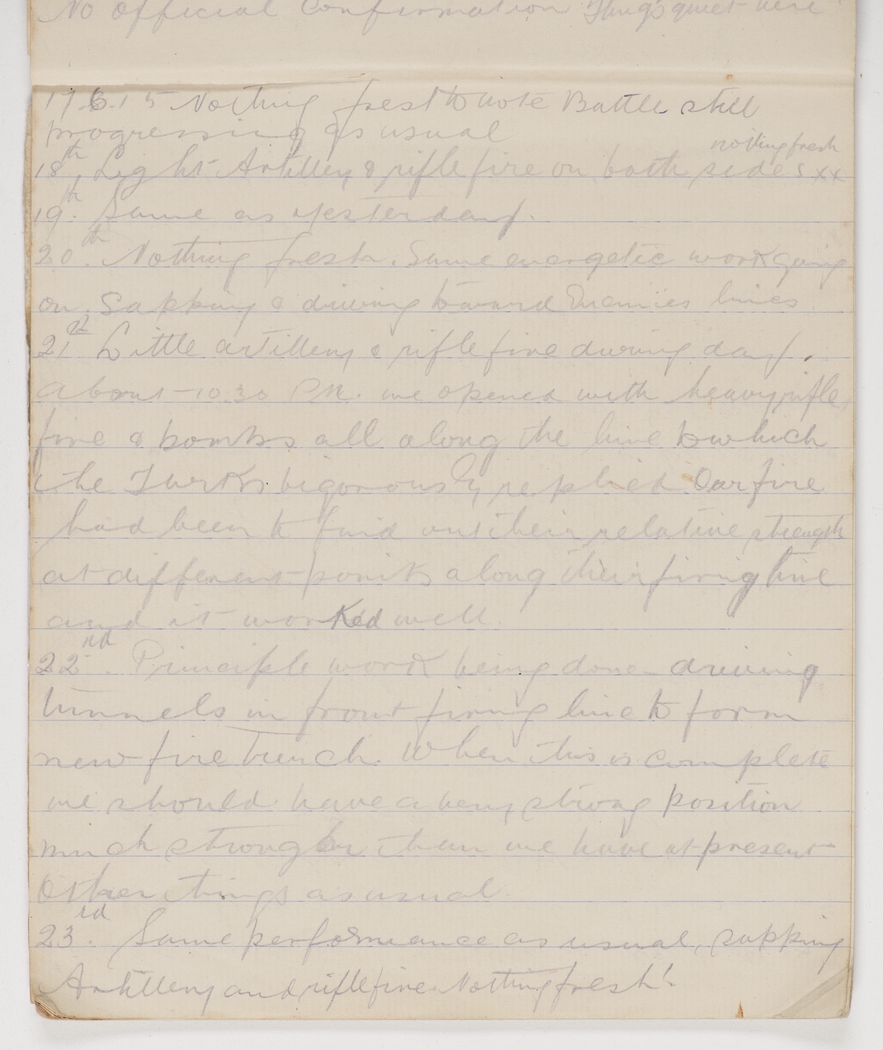 No Official Confirmation Things quiet here
17.6.15 Nothing fresh to note Battle still
progressing as usual
nothing fresh
18th. Light Artillery & rifle fire on both sides xx
19th. Same as yesterday.
20th. Nothing fresh. Same energetic work going
on, Sapping & driving toward Enemies lines
21st Little artillery & rifle fire during day.
About 10.30 P.M. we opened with heavy rifle
fire & bombs all along the line to which
the Turks vigorously replied. Our fire
had been to find out their relative strength
at different points along their firing line
and it worked well
22nd. Principle work being done driving
tunnels in front firing line to form
new fire trench. When this is complete
we should have a very strong position
much stronger than we have at present
Other things as usual.
23rd. Same performance as usual, sapping
Artillery and rifle fire. Nothing fresh!